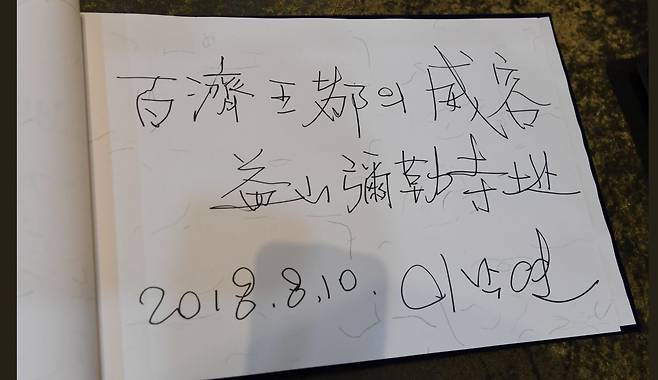 百濟王都의 威容
益山 彌勒寺址
2018.8.10. 이낙연